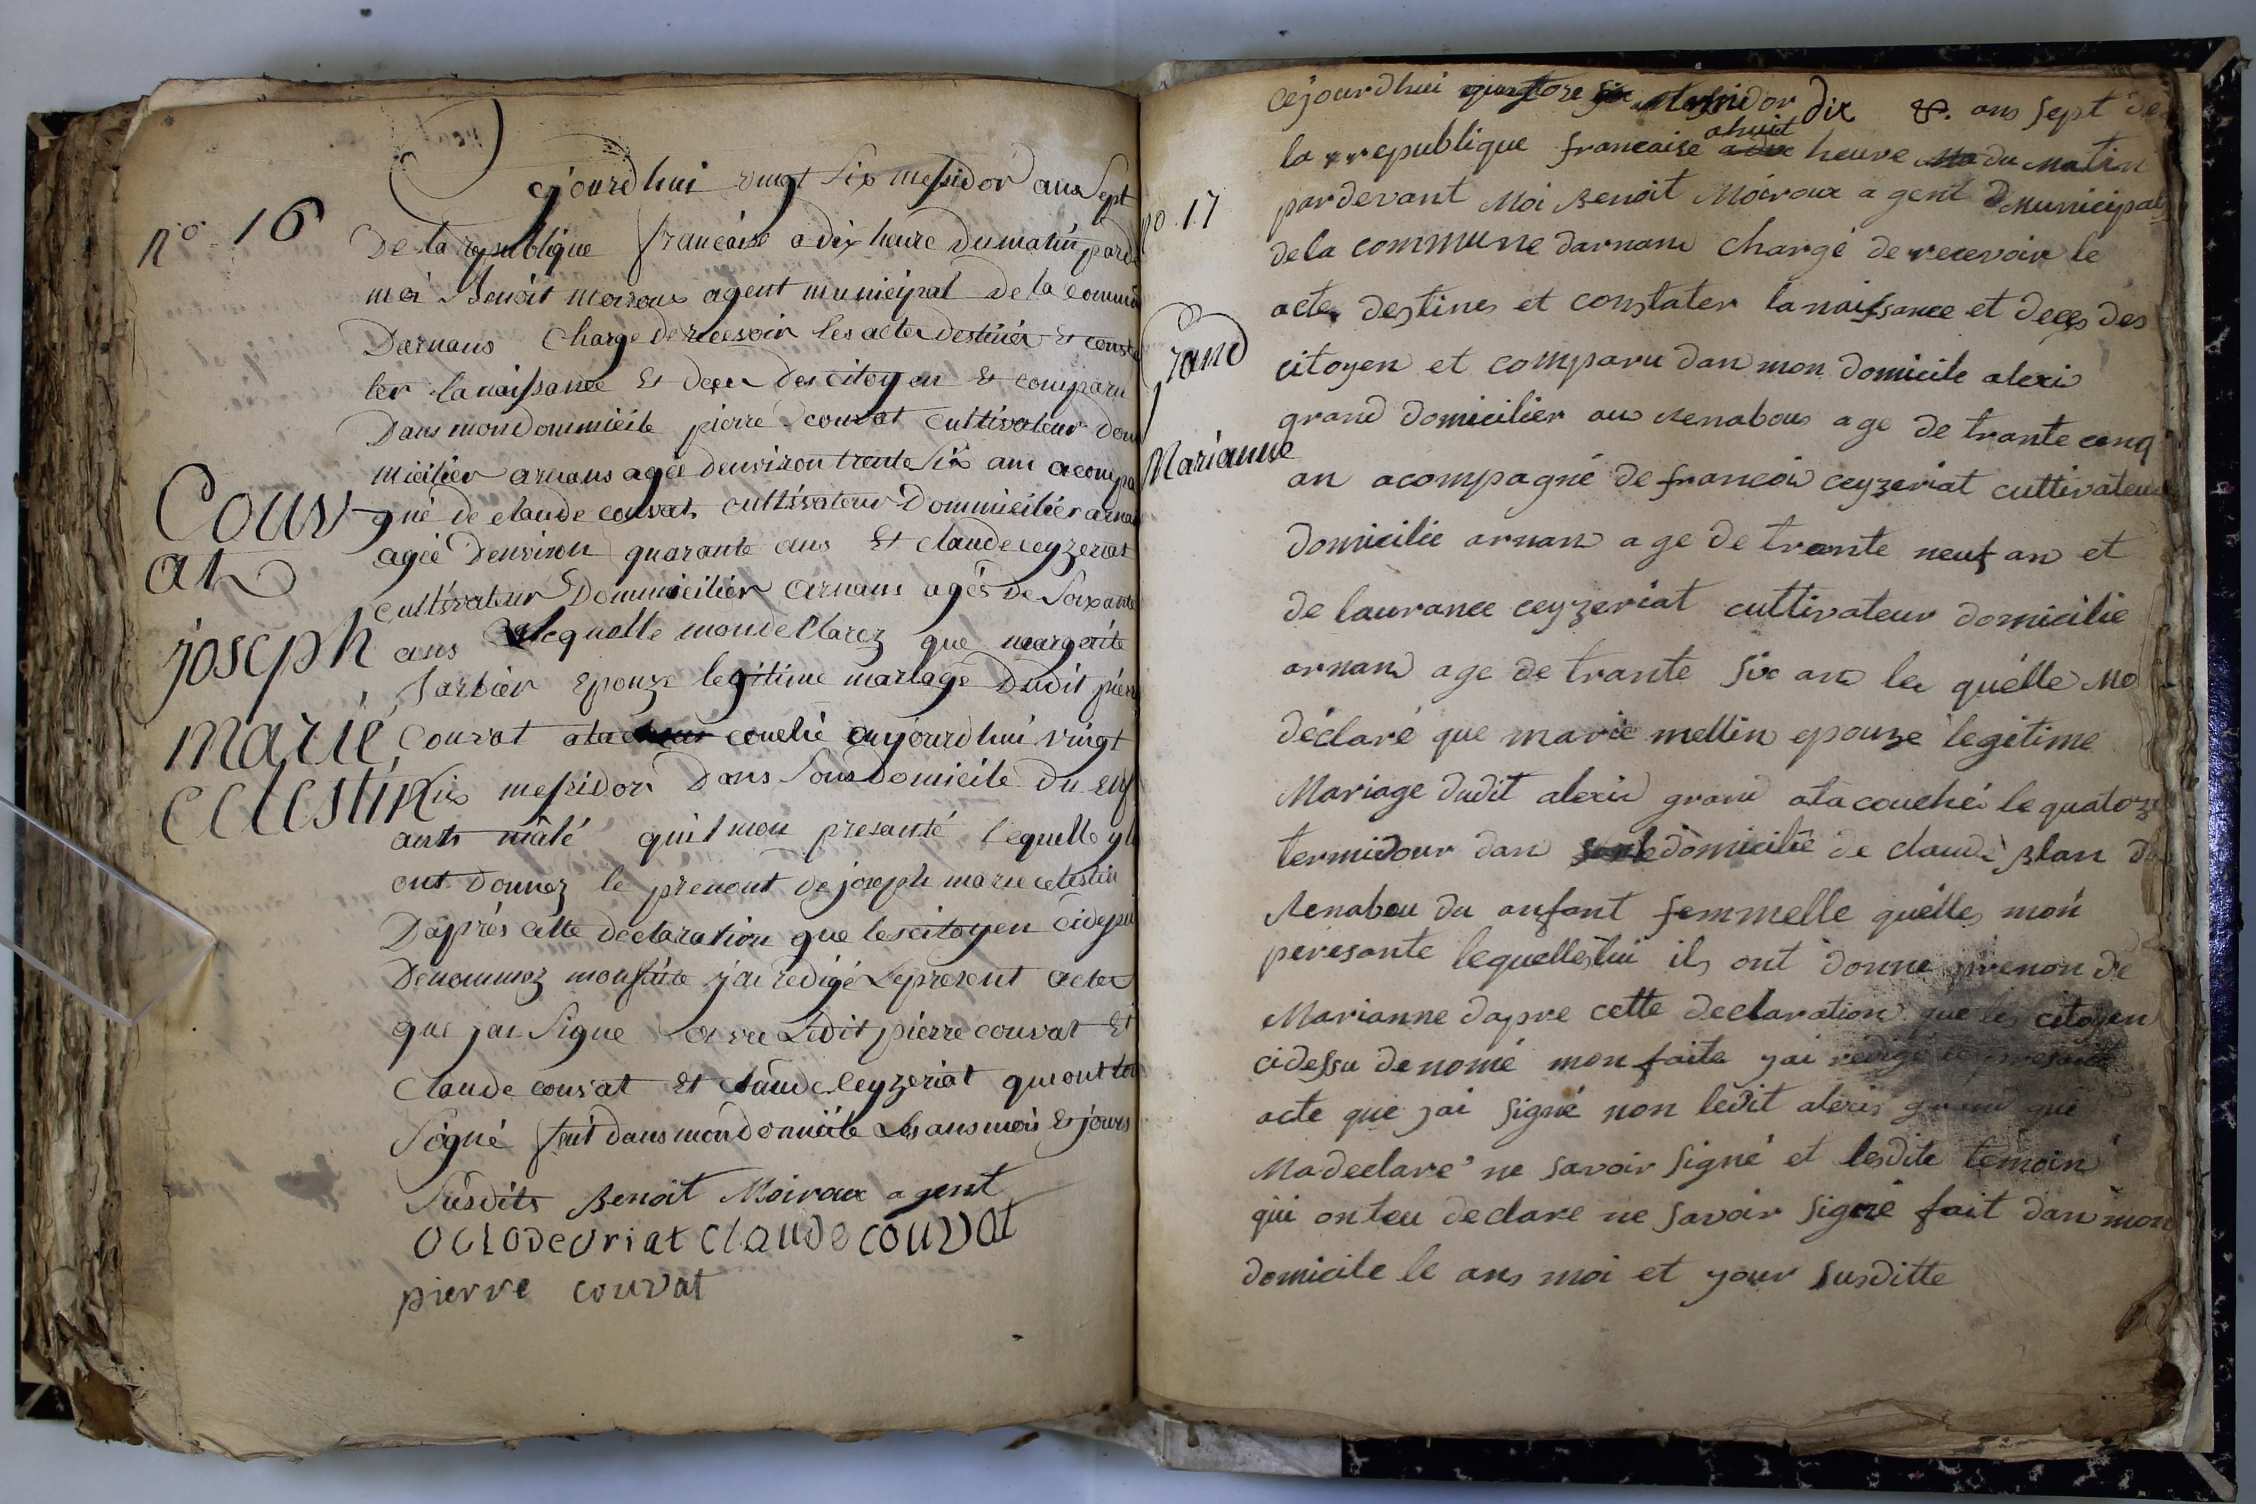 n.o 16
Couvat
joseph
marie
celestin
Cejourdhui vingt Six messidor ans Sept
De la republique francaise a dix heure du matin parde
moi Benoit moiroux agent municipal De la commu
Darnans Charge de recesoir les actes destinés et consta
ter la naissance Et deces des citoyen Et comparu
Dans mon dommicile pierre couvat cultivateur dom
micilier arnans agée denviron trente Six ans acompa
gné de claude couvat cultivateur Dommicilier arnan
agée Denviron quarante ans Et claude ceyzeriat
cultivateur Dommicilier arnans agés de Soixante
ans lequelle mon declarez que margerite
Barbier epouze legitime mariage Dudit pierre
Couvat ata couché aujourdhui vingt
Six messidor Dans Sons Domicile du enf
ants mâlé quil mon presanté lequelle yls
ont donnez le prenont de joseph marie celestin
Dapprés cette declaration que les citoyen cidesu
Denommez mon faite jai redigé Le present actes
que jai Signe avec Ledit pierre couvat Et
Claude couvat Et claude Ceyzeriat qui ont tou
Signé fait dans mon domicile Les ans mois Et jours
Susdits Benoit Moiroux agent
claude couvat
pierre couvat
no. 17
grand
Marianne
Cejourdhui termidor dix ans sept de
la republique francaise a huit heure du matin
pardevant Moi Benoit Moiroux agent municipal
de la commune darnans chargé de recevoir le
acte destines et constater la naissance et deces des
citoyen et comparu dan mon domicile alexi
grand domicilier au Renabous age de trante cinq
an acompagné de francoi ceyzeriat cultivateur
domicilie arnans age de trante neuf an et
de laurance ceyzeriat cultivateur domicilie
arnans age de trante six ans le quélle mo
déclaré que marie mellin epouze legitime
Mariage dudit alexis grand ata couché le quatoze
termidour dan le domicilie de claude Blan du
Renabou du anfant femmelle quélles mon
peresante lequelles lui ils ont donne prenon de
Marianne dapre cette declaration que les citoyen
cidessu denomé mon faite jai redigé le presante
acte que jai signé non ledit alexis grand qui
Ma declare ne savoir signé et lesdite témoin
qui onteu declare ne savoir signé fait dan mon
domicile le ans moi et jour susditte